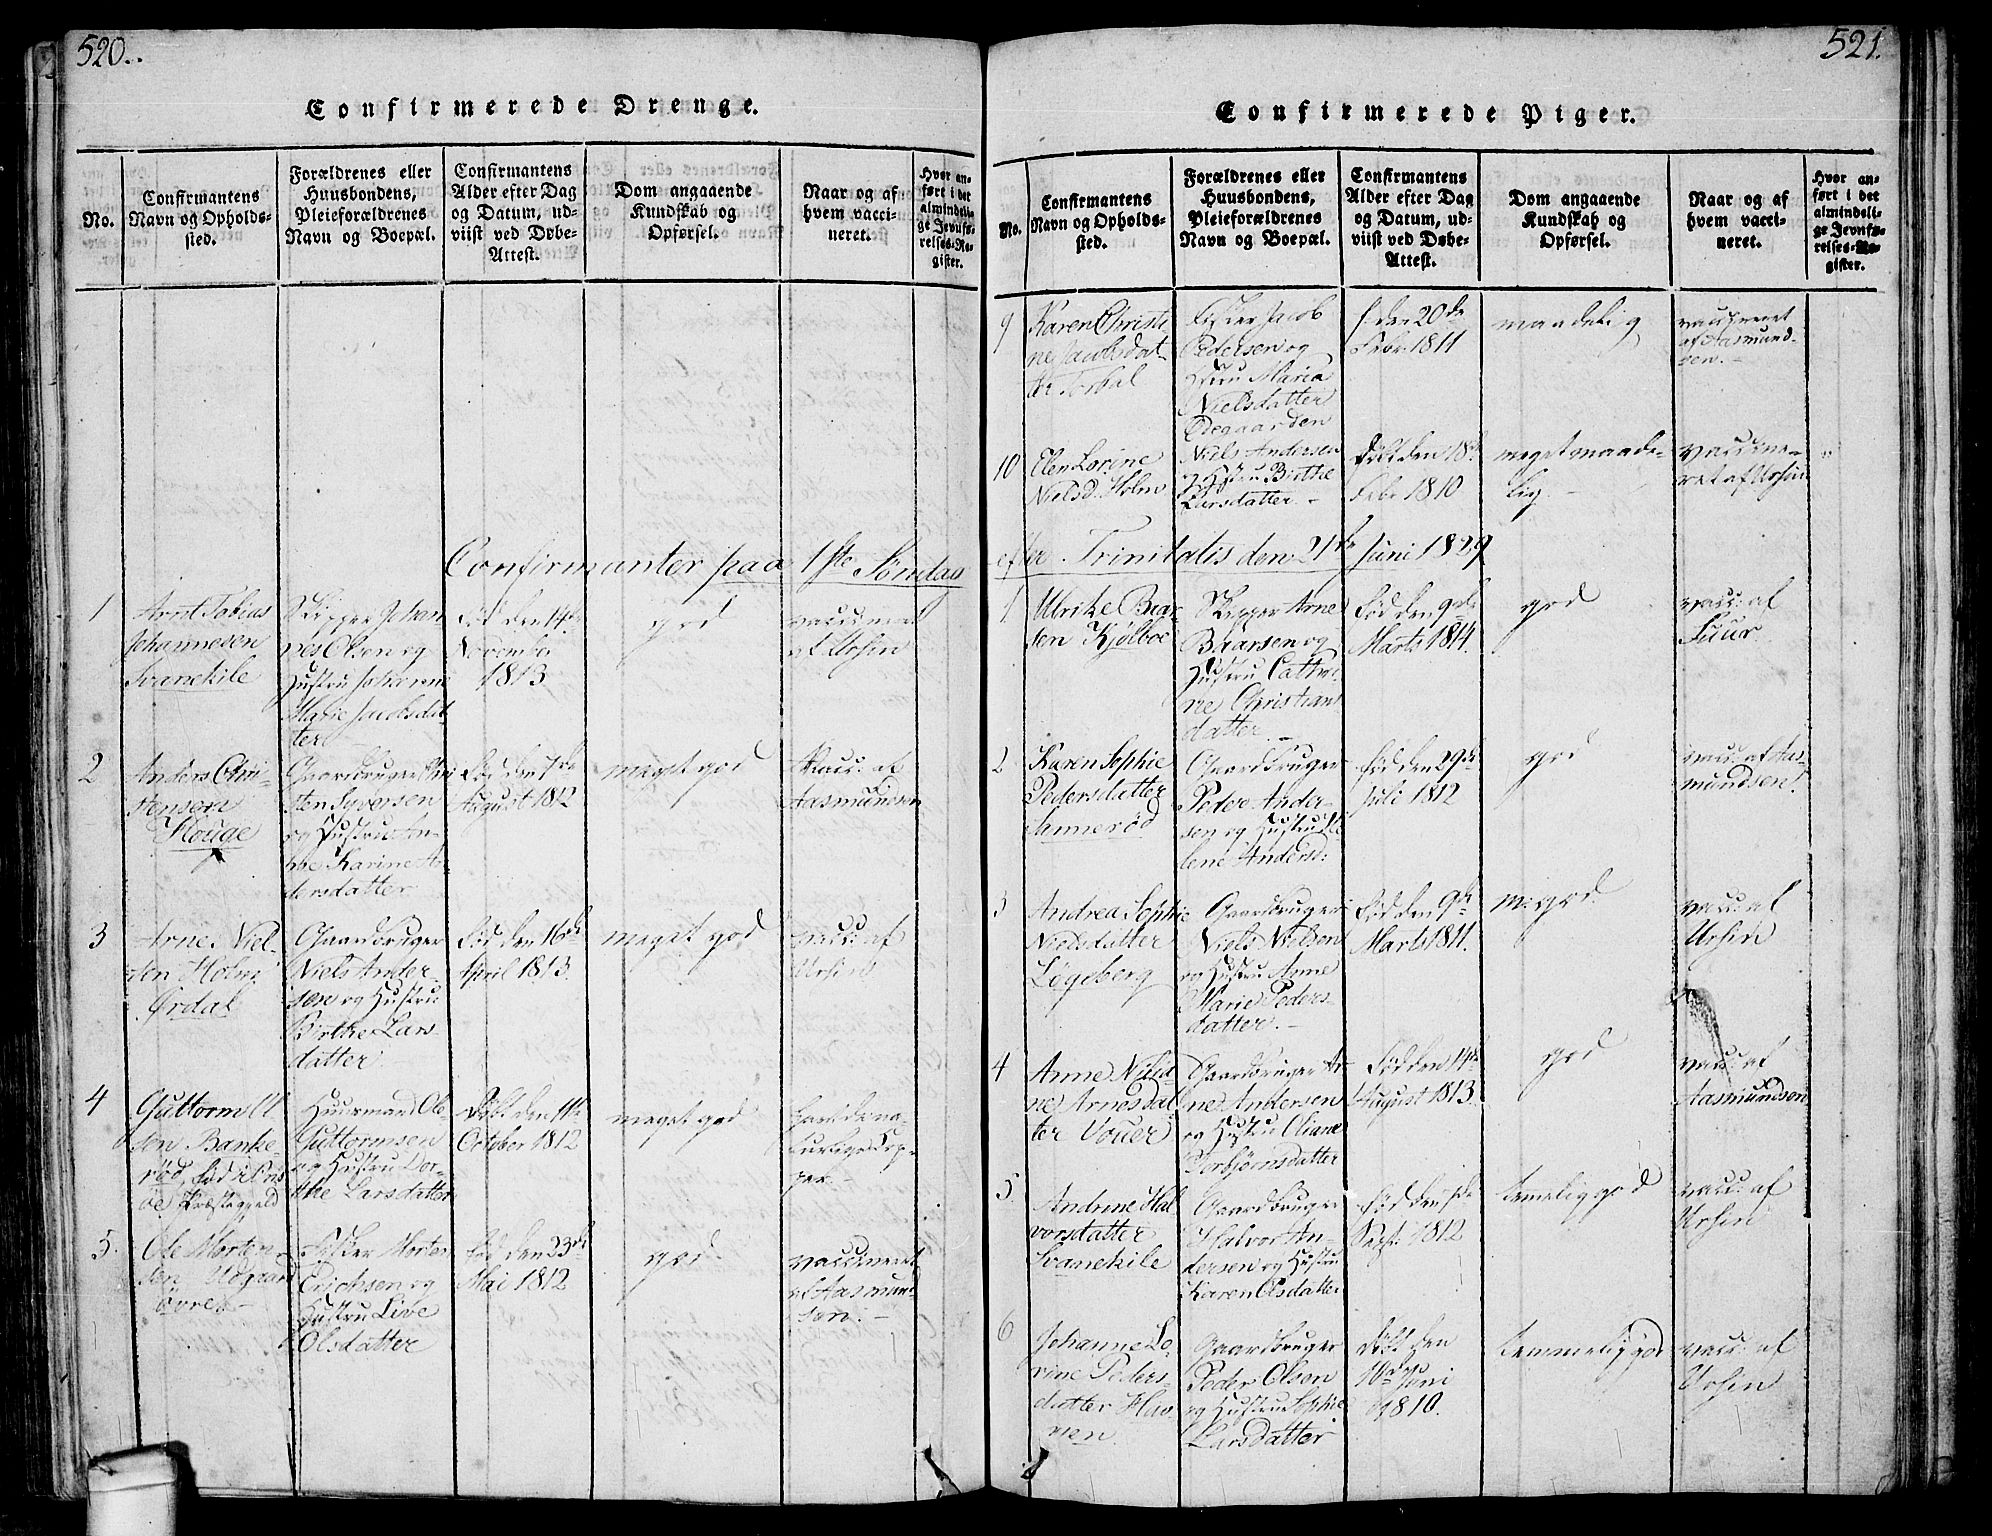 520.
Confirmerede Drenge.
No.
Confirmantens
Navn og Opholds-
sted.
Forældrenes eller
Huusbondens,
Pleieforældrenes
Navn og Boepæl.
Confirmantens
Alder efter Dag
og Datum, ud-
viist ved Døbe-
Attest.
Dom angaaende
Kundskab og
Opførsel.
Naar og af
hvem vacci-
neret.
Hvor an-
ført i det
almindeli-
ge Jevnfø-
relses-Re-
gister.
Confirmanter paa 1ste Søndag
1
Arnt Tobias
Johannesen
Svanekile
Skipper Johan
nes Olsen og
Hustru Johanne
Marie Jacobsdat
ter
Fød den 14de
November
1813
god
af Ursin
2
Anders Chri-
stensen
Houge
Gaardbruger Chri
sten Syversen
og Hustru An-
ne Karine An
dersdatter
Fød den 7de
August 1812
meget god
Vacc: af
Aasmundsen
3
Arne Niel-
sen Holm
Ørdal
Gaardbruger
Niels Ander-
sen og Hustru
Birthe Lars
datter
Fød den 16de
April 1813.
meget god
vacc: af
Ursin
4
Guttorm Ol
sen Banke-
rød, fød i Ons
øe Præstegjeld
Huusmand Ole
Guttormsen
og Hustru Dor-
the Larsdatter
Døbt den 11te
October 1812
meget god
havt de na-
turlige Kop-
per.-
5.
Ole Morten-
sen Udgaard
øvre.-
Fisker Morten
Erichsen og
Hustru Live
Olsdatter
fød den 23de
Mai 1812
god
vaccineret
af Aasmund
sen.-
521.
Confirmerede Piger.
No.
Confirmantens
Navn og Opholds-
sted.
Forældrenes eller
Huusbondens,
Pleieforældrenes
Navn og Boepæl.
Confirmantens
Alder efter Dag
og Datum, ud-
viist ved Døbe-
Attest.
Dom angaaende
Kundskab og
Opførsel.
Naar og af
hvem vacci-
neret.
Hvor an-
ført i det
almindeli-
ge Jevnfø-
relses-Re-
gister.
9
Karen Christi-
ne Jacobsdat-
ter Torbal
Fisker Jacob
Pedersen og
Hstru Maria
Nielsdatter
Ødegaarden
f: den 20de
Febr: 1811
maadelig
vaccineret
af Aasmund-
sen.-
10
Elen Lorine
Nielsd. Holm
Niels Andersen
og Hstru Birthe
Larsdatter.-
Døbt den 18de
Febr 1810
meget maade-
lig.-
vaccine-
ret af Ursin
efter Trinitatis den 21de Juni 1829
1
Ulrike Baar
sen Kjølboe
Skipper Arne
Baarsen og
Hustru Cathri-
ne Christians
datter.-
Fød den 9de
Marts 1814.
god
vacc: af
Fuur.
2
Karen Sophie
Pedersdatter
Sannerød
Gaardbruger
Peder Ander-
sen og Hustru He
lene Andersd:
Fød den 29de
Juli 1812
god
vacc: af Aas-
mundsen.
3
Andrea Sophie
Nielsdatter
Løgeberg
Gaardbruger
Niels Nielsen
og Hustru Anne
Marie Peders-
datter.-
Fød den 9de
Marts 1811.
m. god.
vacc: af
Ursin
4
Anne Nilsi-
ne Arnesdat
ter Vouer
Gaardbruger Ar-
ne Andersen
og Hustru Oliane
Torbjørnsdatter
Fød den 14de
August 1813.
god
vacc: af
Aasmundsen
5
Andrine Hal-
vorsdatter
Svanekile
Gaardbruger
Halvor An-
dersen og Hustru
Karen Olsdatter
fød den 1de
Sept: 1812
temelig god
vacc: af
Ursin
6
Johanne Lo-
rine Peders-
datter Hau-
gen
Gaardbruger
Peder Olsen
og Hustrue Sophie
Larsdatter
Døbt den
10de Juni
1810.
temmelig god
vacc: af
Ursin